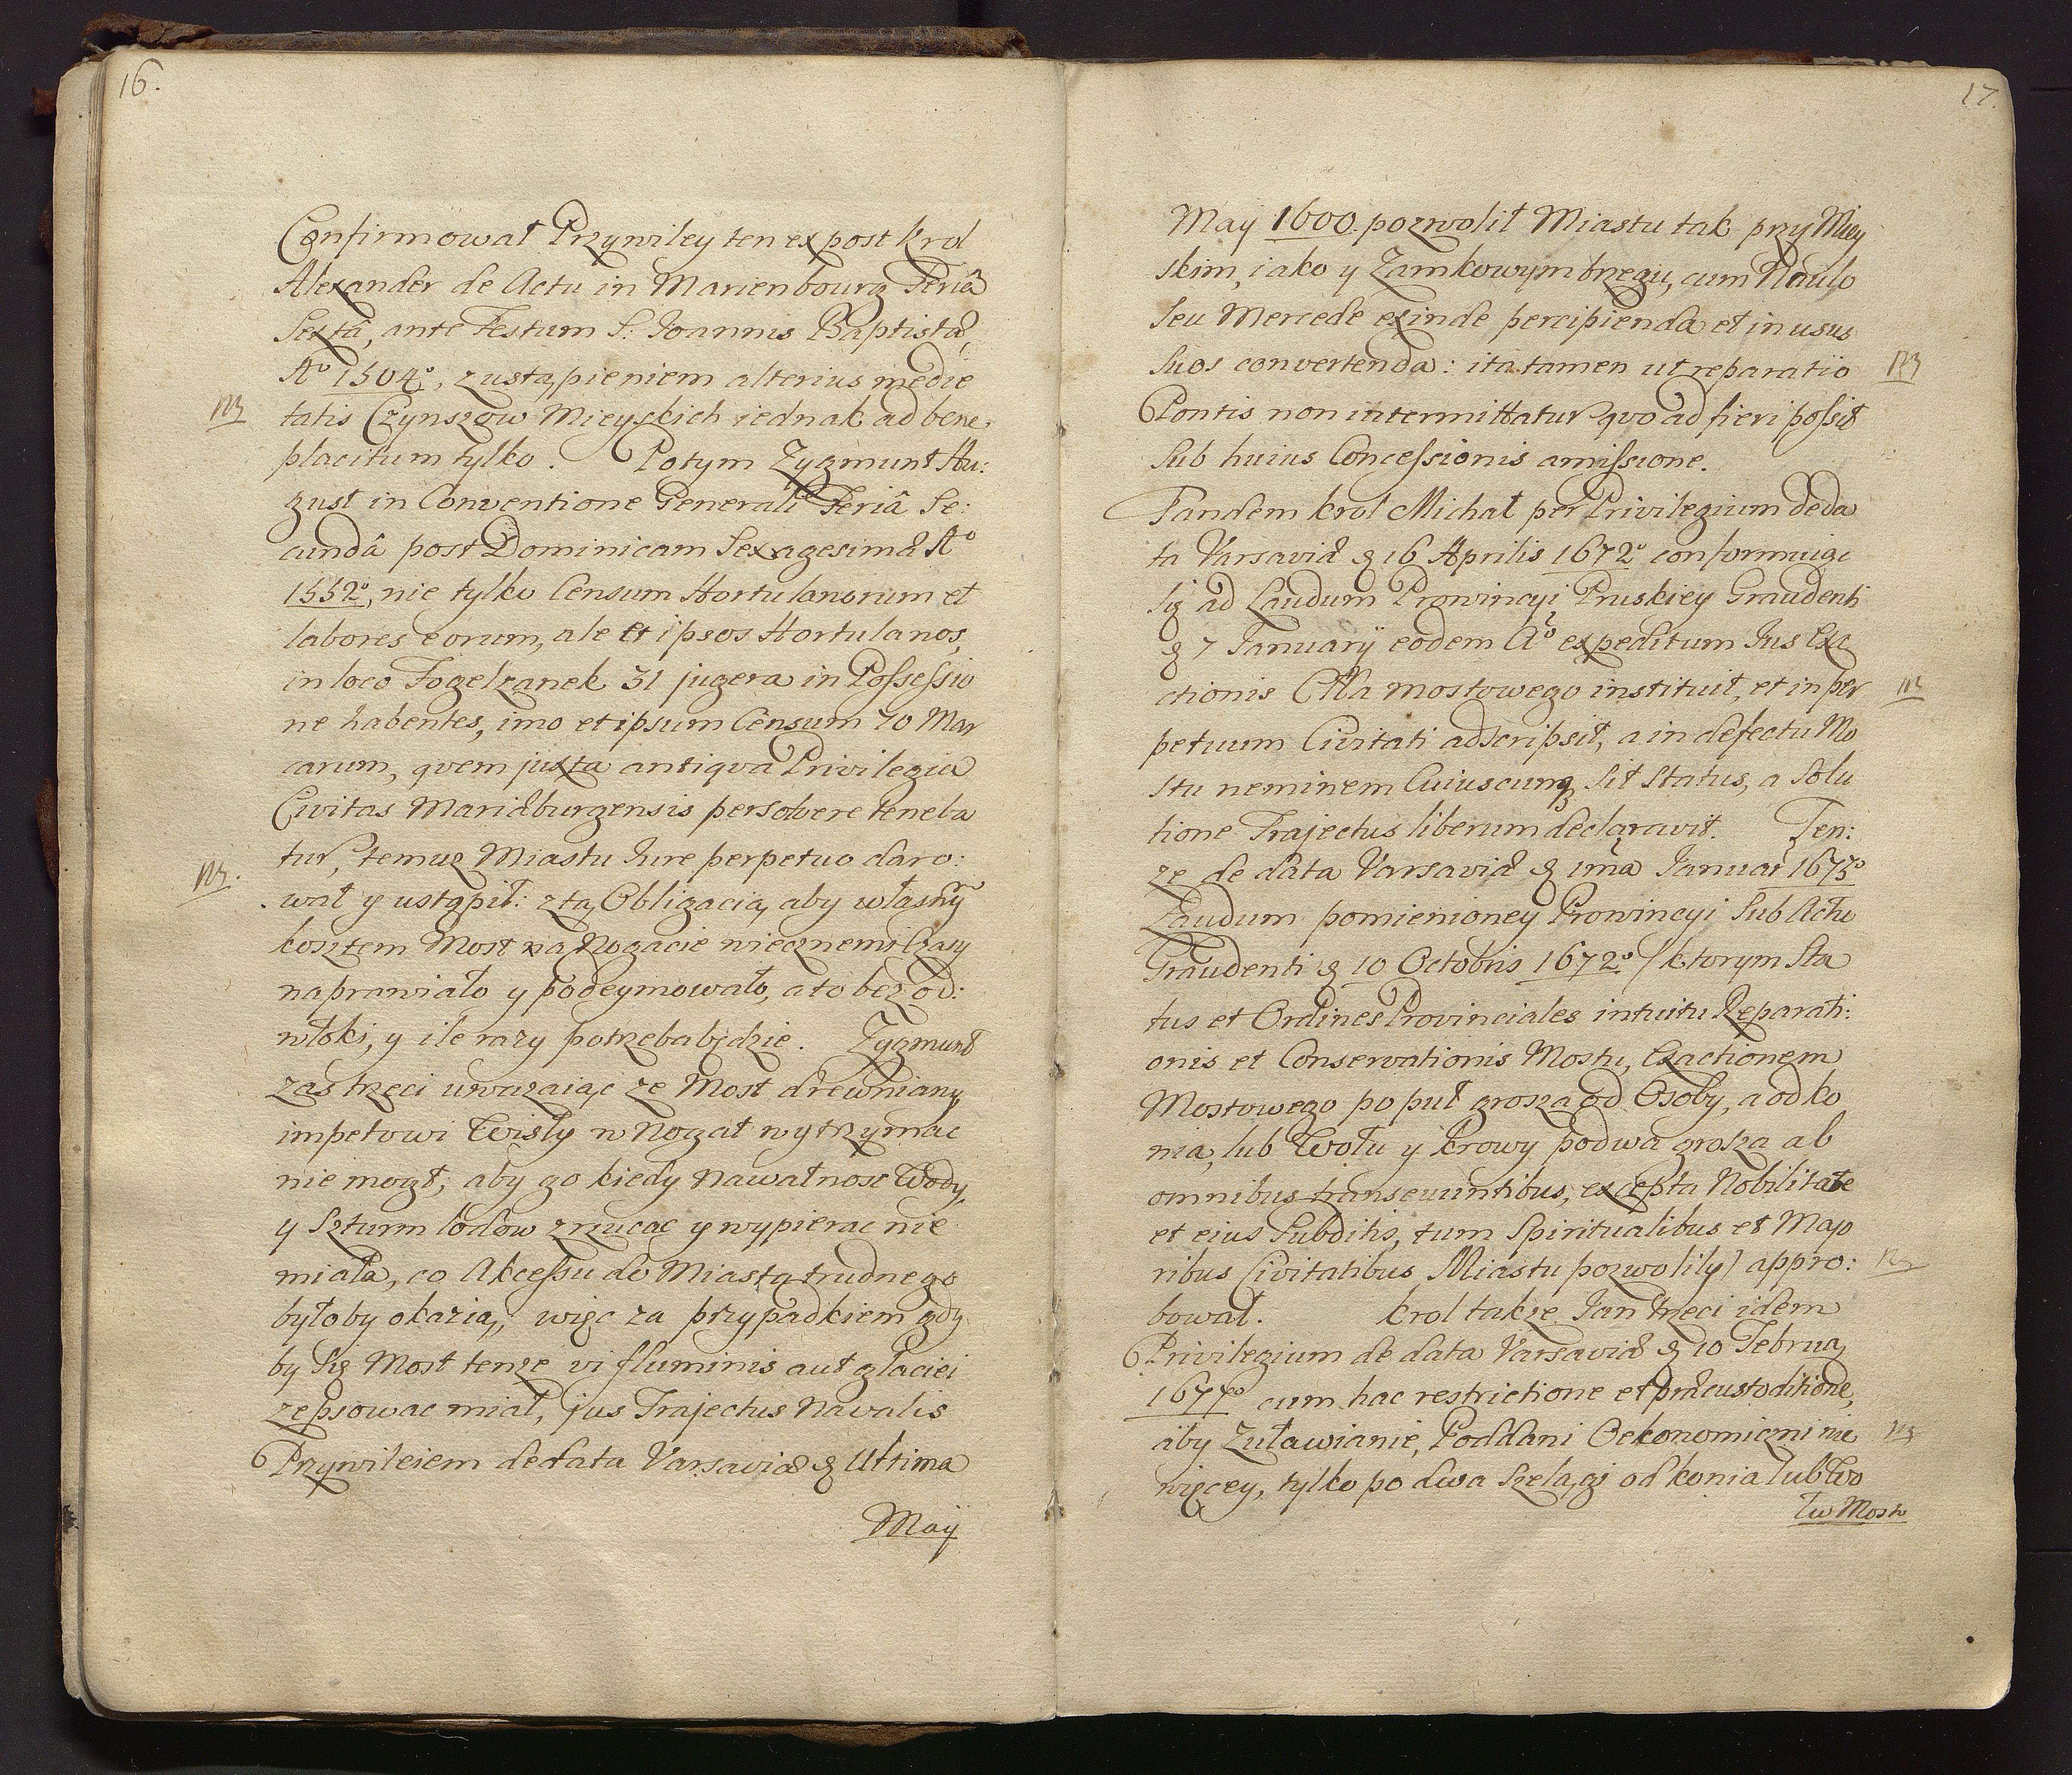 16.
Confirmował Przywiley ten ex post Krol
Alexander de Actu in Marienbourg Feriâ
Sextâ, ante Festum S: Joannis Baptistæ,
Aº 1504º, z ustąpieniem alterius medie
tatis Czynszow Mieyskich iednak ad bene
placitum tylko. Potym Zygmunt Au:
gust in Conventione Generali Feriâ Se:
cundâ post Dominicam Sexagesimæ Aº
1552º, nie tylko Censum Hortulanorum et
labores eorum, ale et ipsos Hortulanos,
in loco Fogelzanek 31 jugera in Possessio
ne habentes, imo et ipsum Censum 70 Mar
carum, qvem juxta antiqva Privilegia
Civitas Mariæburgensis persolvere teneba
tur, temuz Miastu Jure perpetuo daro:
wał y ustąpił: z tą Obligacią, aby własnỹ
kosztem Most na Nogacie wiecznemi Czasy
naprawiało y podeymowało, a to bez od:
włoki, y ile razy potrzeba będzie. Zygmunt
zas trzeci uwazaiąc ze Most drewniany,
impetowi Wisły w Nogat wytrzymac
nie mogł, aby go kiedy nawałnosc Wody,
y Szturm lodow zrzucac y wypierac nie
miała, co Akcessu do Miasta trudnego
byłoby okazią, więc za przypadkiem gdy
by się Most tenze vi fluminis aut glaciei
zepsowac miał, jus Trajectus Navalis
Przywileiem de data Varsaviæ d Ultima
Maÿ
17.
Maÿ 1600. pozwolił Miastu tak przy Miey
skim, iako y Zamkowym brzegu, cum Naulo
seu Mercede exinde percipienda et in usus
suos convertenda: ita tamen ut reparatio
Pontis non intermittatur qvo ad fieri possit
sub huius Concessionis amissione.
Tandem krol Michał per Privilegium de da
ta Varsaviæ d 16 Aprilis 1672º conformuiąc
się ad Laudum Prowincyi Pruskiey Graudenti
d 7 Januarÿ eodem Aº expeditum Jus Exa
ctionis Cła mostowego instituit, et in per
petuum Civitati adscripsit, a in defectu Mo
stu neminem Cuiuscunq sit status, a Solu
tione Trajectus liberum declaravit. Ten:
ze de data Varsaviæ d 1ma Januar 1673º
Laudum pomienioney Prowincyi sub Actu
Graudenti d 10 Octobris 1672º /ktorym Sta
tus et Ordines Provinciales intuitu Reparati:
onis et Conservationis Mostu, Exactionem
Mostowego po puł grosza od Osoby, a od ko
nia, lub Wołu y Krowy po dwa grosza ab
omnibus transeuuntibus, excepta Nobilitate
et eius Subditis, tum Spiritualibus et Majo
ribus Civitatibus Miastu pozwolily/ appro:
bował. Krol takze Jan trzeci idem
Privilegium de data Varsaviæ d 10 Februa,
1677º cum hac restrictione et præcustoditione,
aby Zuławianie, Poddani Oekonomiczni nie
więcey, tylko po dwa Szelągi od konia lub Wo
łu Mosto